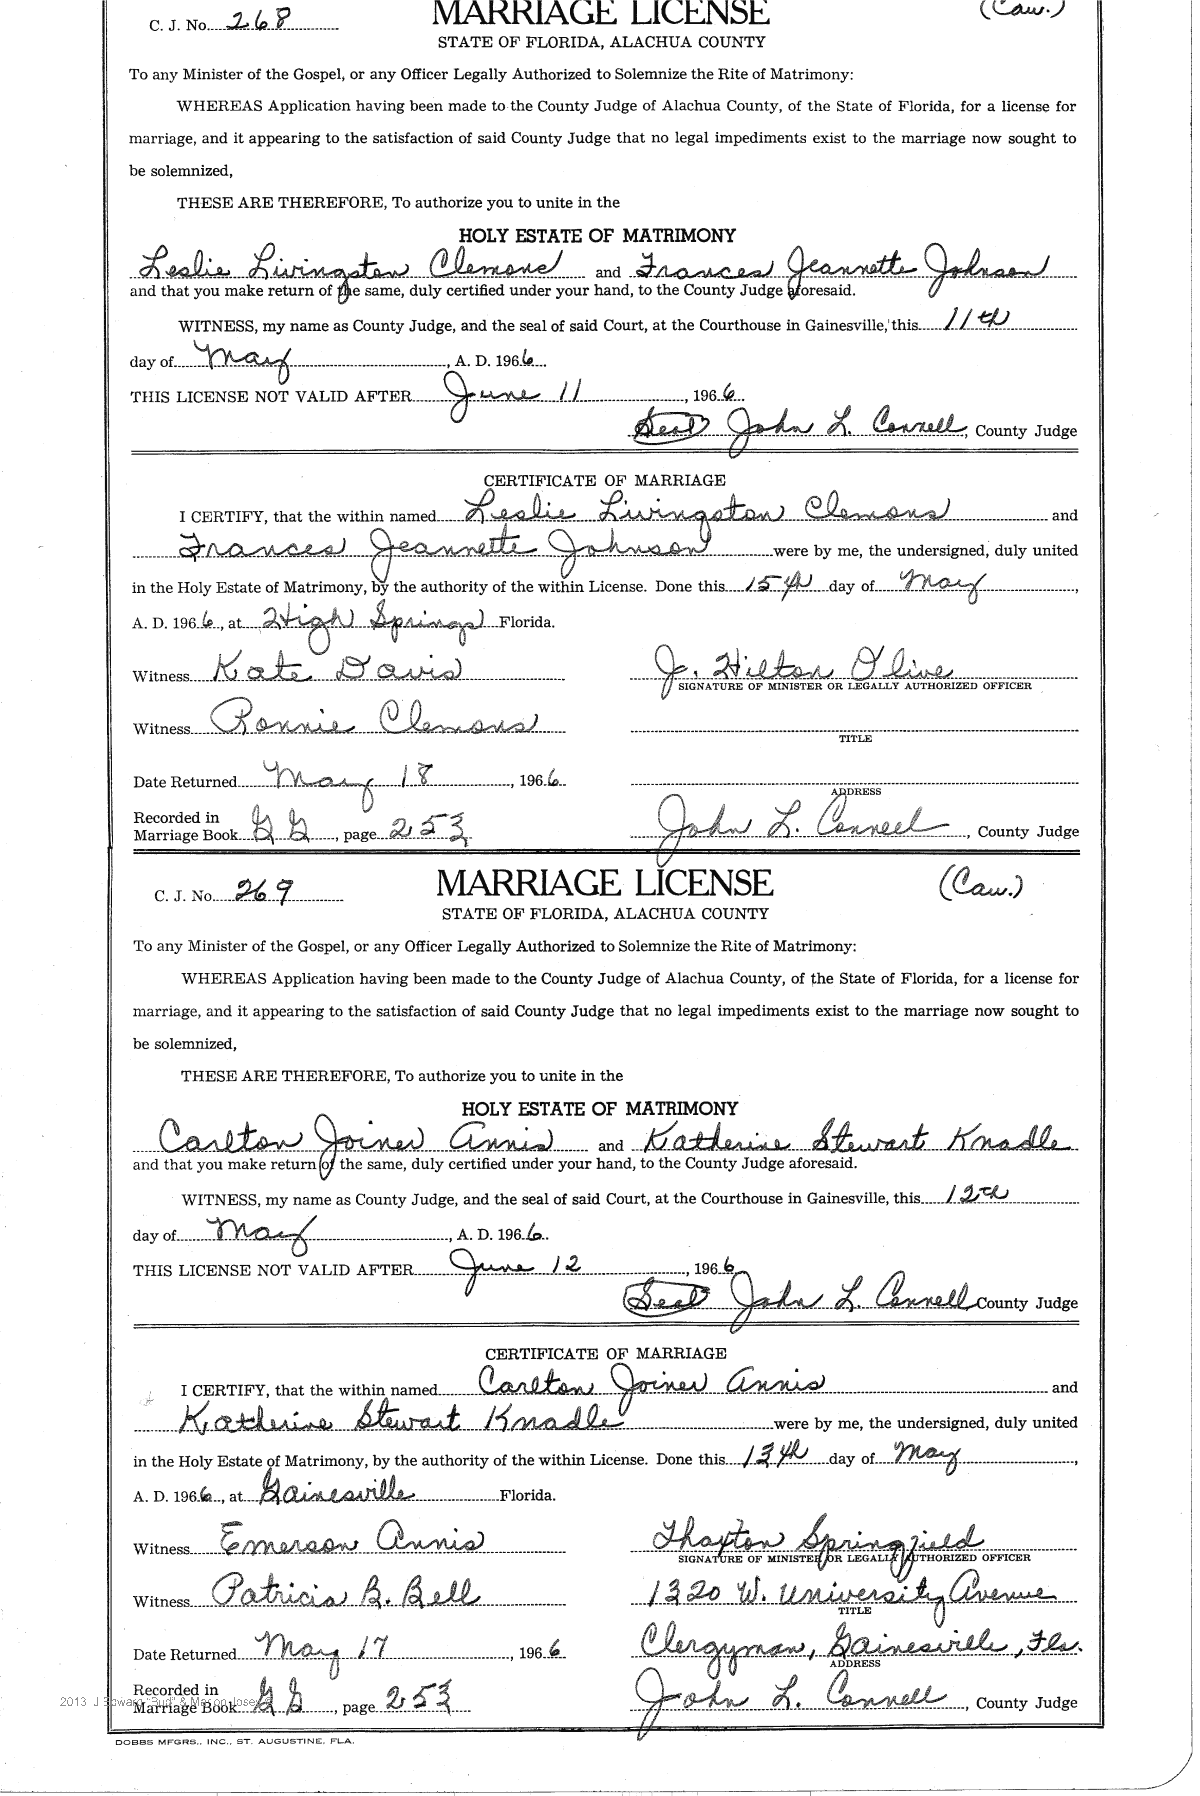 C. J. No. 268
MARRIAGE LICENSE
(Cau.)
STATE OF FLORIDA, ALACHUA COUNTY
To any Minister of the Gospel, or any Officer Legally Authorized to Solemnize the Rite of Matrimony:
WHEREAS Application having been made to the County Judge of Alachua County, of the State of Florida, for a license for
marriage, and it appearing to the satisfaction of said County Judge that no legal impediments exist to the marriage now sought to
be solemnized,
THESE ARE THEREFORE, To authorize you to unite in the
HOLY ESTATE OF MATRIMONY
Leslie Livingston Clemons and Frances Jeannette Johnson
and that you make return of the same, duly certified under your hand, to the County Judge aforesaid.
WITNESS, my name as County Judge, and the seal of said Court, at the Courthouse in Gainesville, this 11th
day of May, A. D. 1966.
THIS LICENSE NOT VALID AFTER June 11, 1966.
(Seal) John L. Connell, County Judge
CERTIFICATE OF MARRIAGE
I CERTIFY, that the within named Leslie Livingston Clemons and
Frances Jeannette Johnson were by me, the undersigned, duly united
in the Holy Estate of Matrimony, by the authority of the within License. Done this 15th day of May,
A. D. 1966, at High Springs Florida.
Witness Kate Davis J. Hilton Olive
SIGNATURE OF MINISTER OR LEGALLY AUTHORIZED OFFICER
Witness Ronnie Clemons
TITLE
Date Returned May 18, 1966
ADDRESS
Recorded in
Marriage Book GG, page 253 John L. Connell, County Judge
C. J. No. 269
MARRIAGE LICENSE
(Cau.)
STATE OF FLORIDA, ALACHUA COUNTY
To any Minister of the Gospel, or any Officer Legally Authorized to Solemnize the Rite of Matrimony:
WHEREAS Application having been made to the County Judge of Alachua County, of the State of Florida, for a license for
marriage, and it appearing to the satisfaction of said County Judge that no legal impediments exist to the marriage now sought to
be solemnized,
THESE ARE THEREFORE, To authorize you to unite in the
HOLY ESTATE OF MATRIMONY
Carlton Joiner Annis and Katherine Stewart Knadle
and that you make return of the same, duly certified under your hand, to the County Judge aforesaid.
WITNESS, my name as County Judge, and the seal of said Court, at the Courthouse in Gainesville, this 12th
day of May, A. D. 1966.
THIS LICENSE NOT VALID AFTER June 12, 1966
(Seal) John L. Connell County Judge
CERTIFICATE OF MARRIAGE
I CERTIFY, that the within named Carlton Joiner Annis and
Katherine Stewart Knadle were by me, the undersigned, duly united
in the Holy Estate of Matrimony, by the authority of the within License. Done this 13th day of May,
A. D. 1966, at Gainesville Florida.
Witness Emerson Annis Thaxton Springfield
SIGNATURE OF MINISTER OR LEGALLY AUTHORIZED OFFICER
Witness Patricia B. Bell 1320 W. University Avenue
TITLE
Date Returned May 17, 1966 Clergyman, Gainesville, Fla.
ADDRESS
Recorded in
Marriage Book GG, page 253 John L. Connell, County Judge
2013 J Edward "Bud" & Marion Josey
DOBBS MFGRS., INC., ST. AUGUSTINE, FLA.